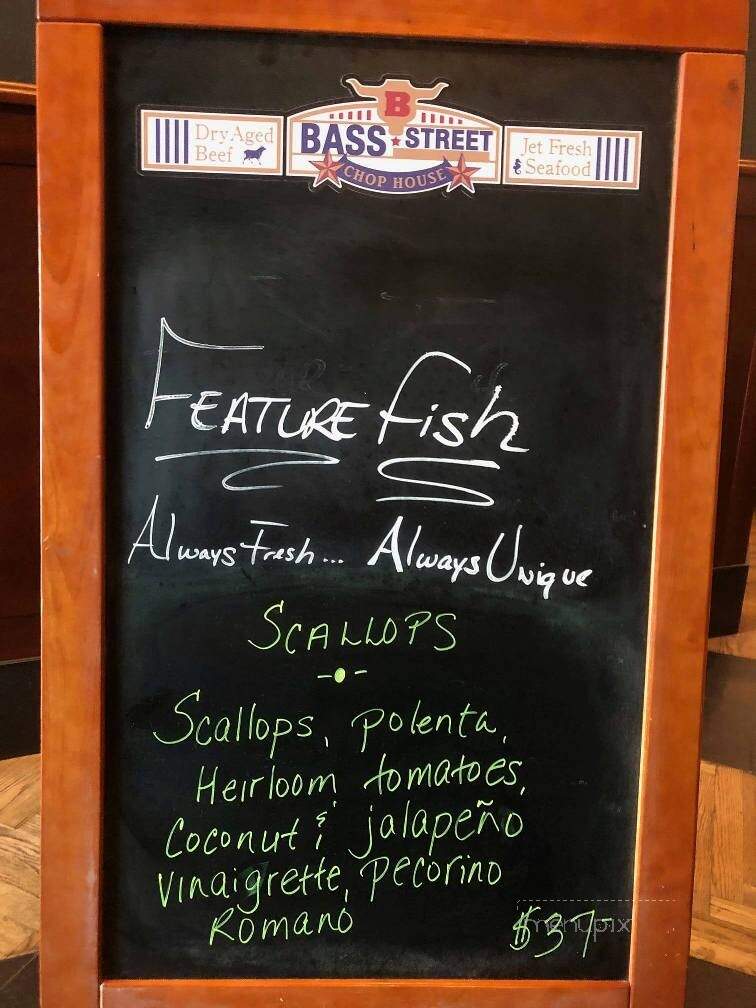 Dry Aged
Beef
B
BASS STREET
CHOP HOUSE
Jet Fresh
Seafood
FEATURE Fish
Always Fresh... Always Unique
SCALLOPS
Scallops, polenta,
Heirloom tomatoes,
Coconut & jalapeño
Vinaigrette, pecorino
Romano
$37-
menupix